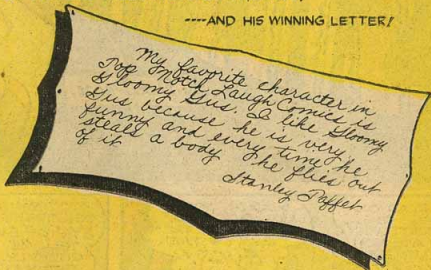 ----AND HIS WINNING LETTER!
My favorite character in
Top Notch Laugh Comics is
Gloomy Gus. I like Gloomy
Gus because he is very
funny and every time he
steals a body he flies out
of it
Stanley Taffet